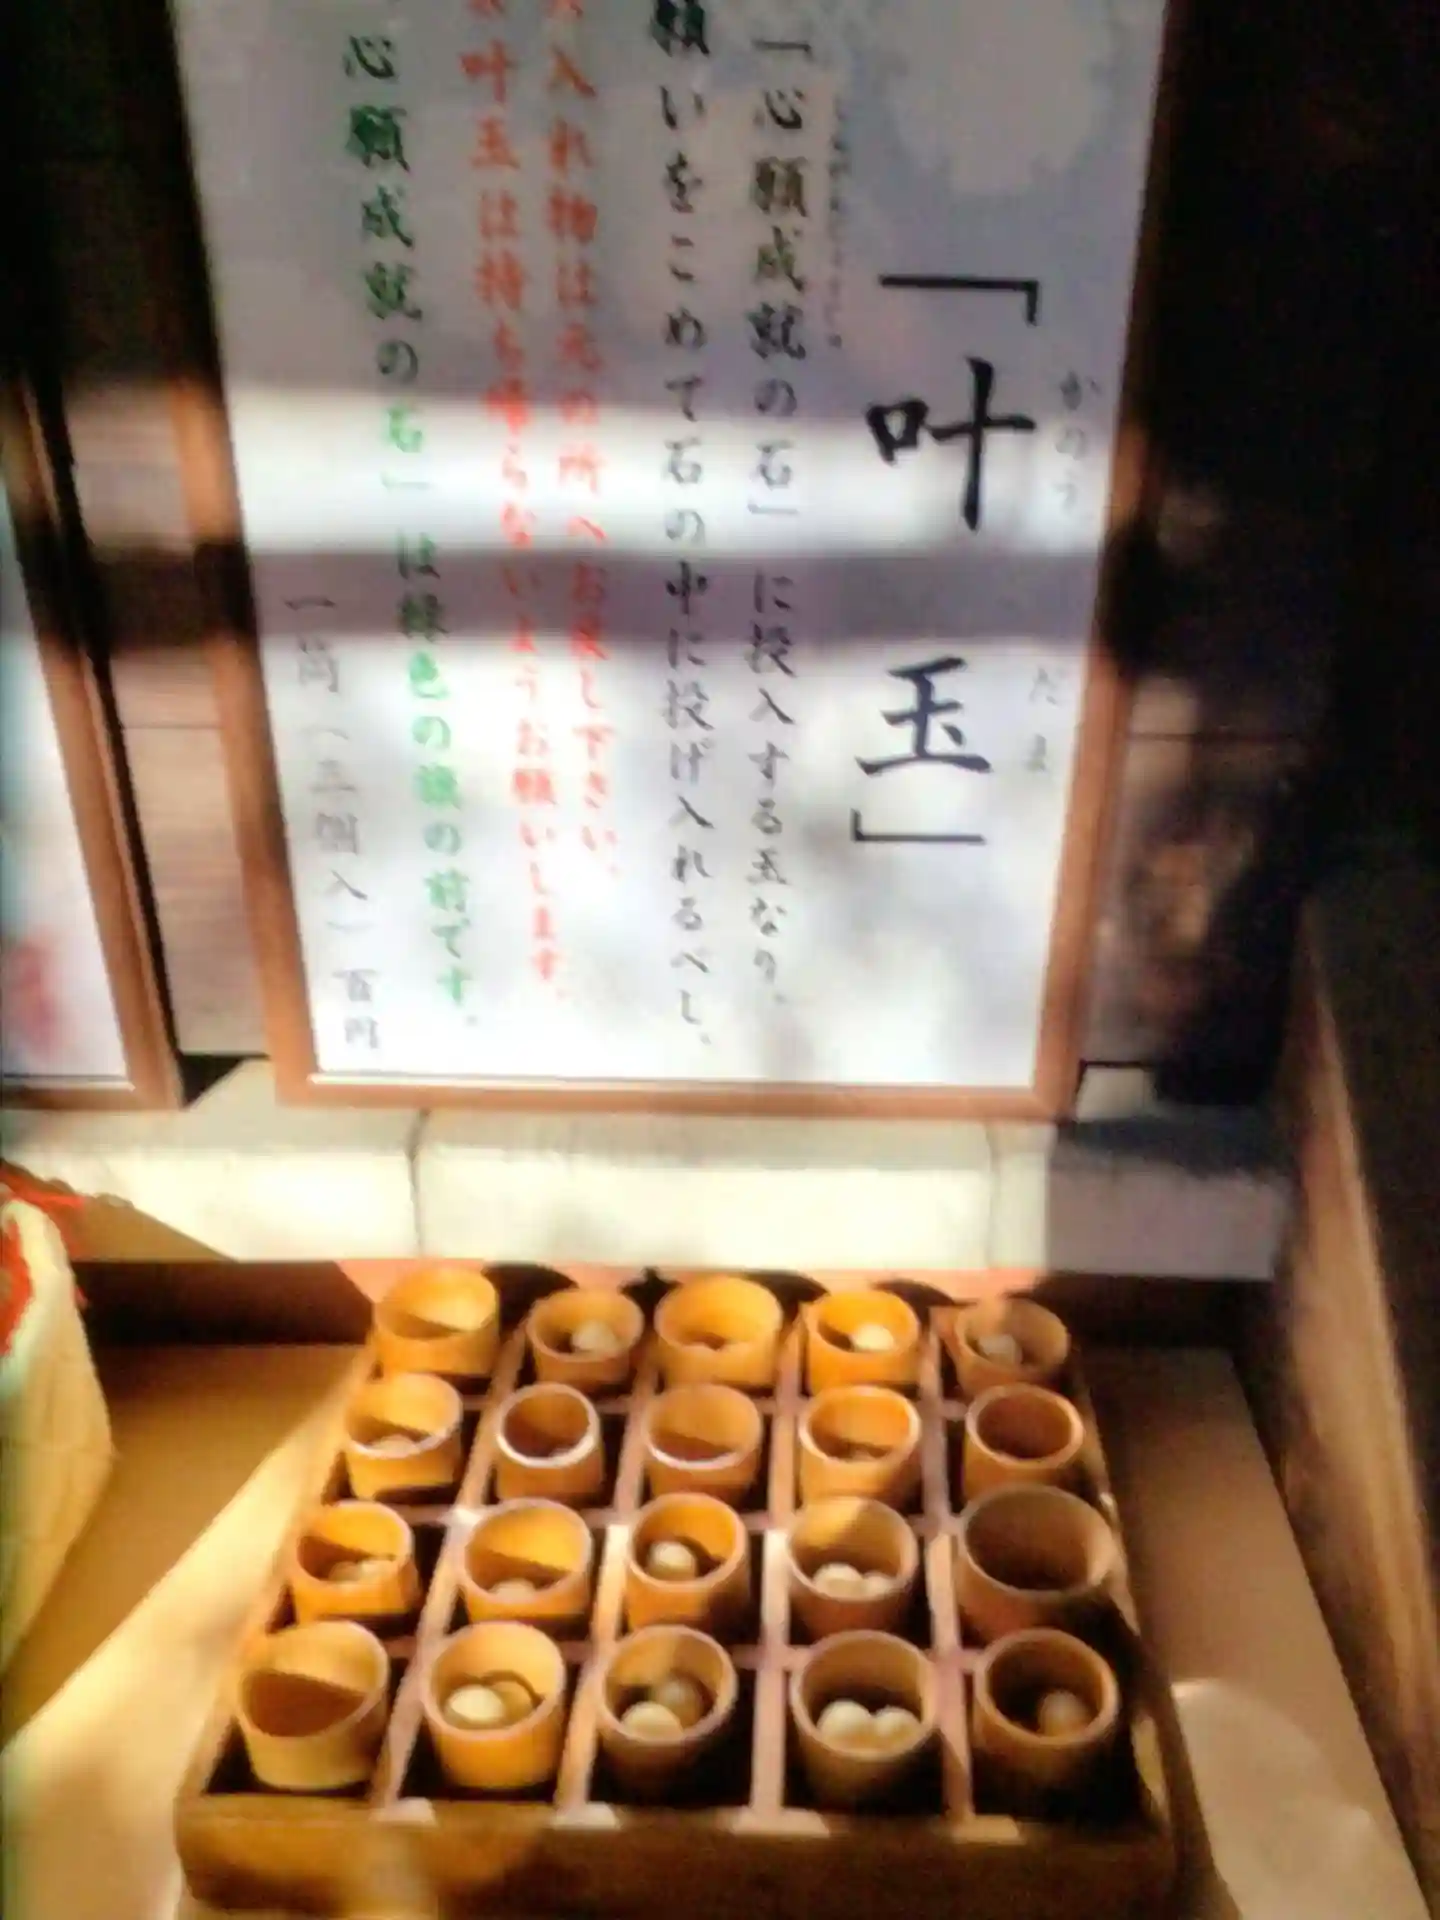 「叶玉」
かのう だま
「心願成就の石」に投入する玉なり、
願いをこめて石の中に投げ入れるべし、
入れ物は元の所へお戻し下さい、
叶玉は持ち帰らないようお願いします、
心願成就の石」は緑色の旗の前です、
一筒(三個入)百円